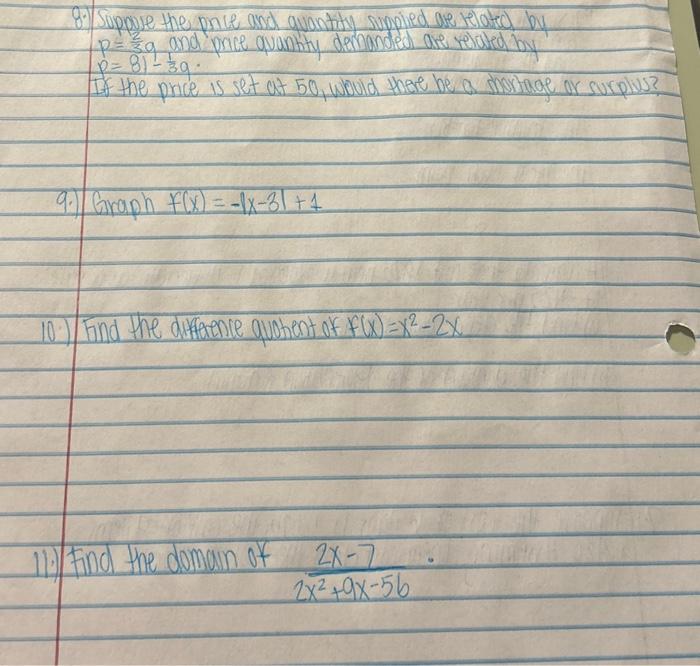 8.) Suppose the price and quantity supplied are related by
p = 2/3q and price quantity demanded are related by
p = 81 - 1/3q.
If the price is set at 50, would there be a shortage or surplus?
9.) Graph f(x) = -|x-3| + 1
10.) Find the difference quotient of f(x) = x² - 2x
11.) Find the domain of 2x-7 / 2x²+9x-56 .